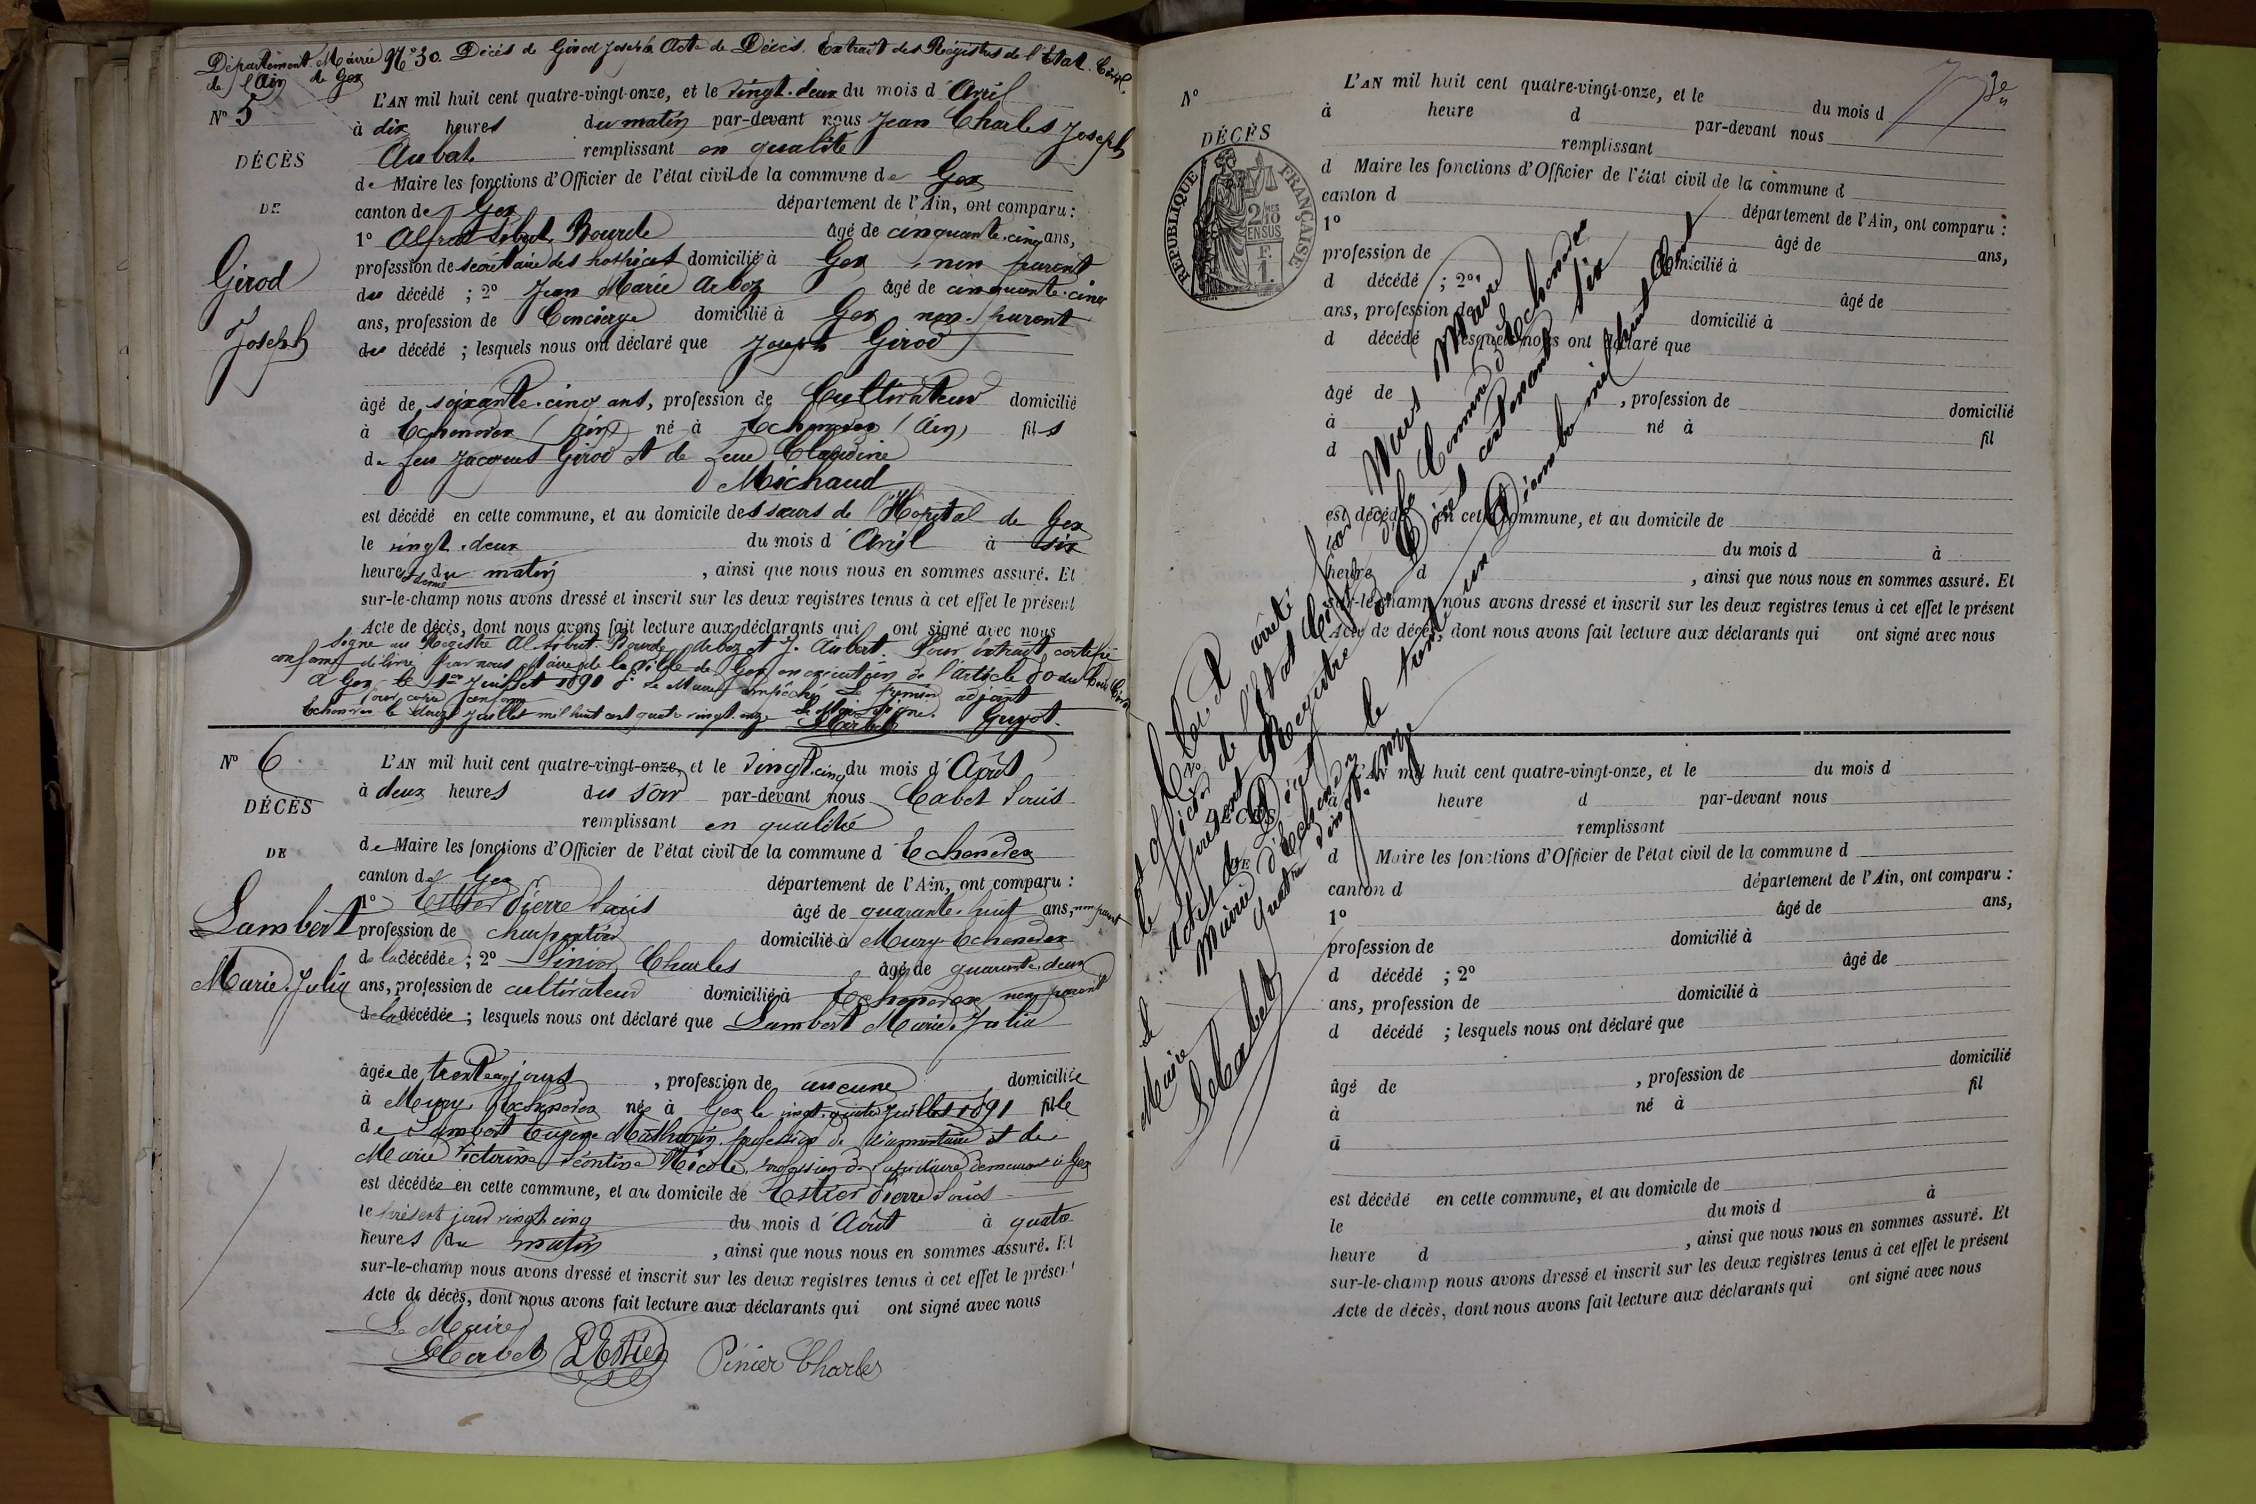 Département Mairie N° 30. Décès de Girod Joseph Acte de Décès. Extrait des Régistres de l'Etat-Civil.
de l'Ain de Gex
N° 5
DÉCÈS
DE
Girod
Joseph
L'AN mil huit cent quatre-vingt-onze, et le vingt-deux du mois d'Avril
à dix heures du matin par-devant nous Jean Charles Joseph
Aubert remplissant en qualité
de Maire les fonctions d'Officier de l'état civil de la commune de Gex
canton de Gex département de l'Ain, ont comparu :
1° Alfred Bourde âgé de cinquante-cinq ans,
profession de secrétaire des hospices domicilié à Gex, non parent
du décédé ; 2° Jean Marie Arboz âgé de cinquante-cinq
ans, profession de Concierge domicilié à Gex non-parent
du décédé ; lesquels nous ont déclaré que Joseph Girod
âgé de soixante-cinq ans, profession de Cultivateur domicilié
à Echenevex (Ain) né à Echenevex (Ain) fils
de feu Jacques Girod et de feue Claudine
Michaud
est décédé en cette commune, et au domicile des sœurs de l'Hopital de Gex
le vingt-deux du mois d'Avril à six
heures du matin, ainsi que nous nous en sommes assuré. Et
demie
sur-le-champ nous avons dressé et inscrit sur les deux registres tenus à cet effet le présent
Acte de décès, dont nous avons fait lecture aux déclarants qui ont signé avec nous
Signé au Registre Bourde, et J. Aubert. Pour extrait certifié
conforme délivré par nous Maire de la Ville de Gex en exécution de l'article 80 du Code Civil
A Gex, le 1er Juillet 1891 Le Maire empêché Le premier adjoint
Pour copie conforme signé. Guyot.
Echenevex le douze Juillet mil huit cent quatre vingt onze Le Maire
LCabet
N° 6
DÉCÈS
DE
Lambert
Marie Julia
L'AN mil huit cent quatre-vingt-onze, et le vingt-cinq du mois d'Août
à deux heures du soir par-devant nous Cabet Louis
remplissant en qualité
de Maire les fonctions d'Officier de l'état civil de la commune d'Echenevex
canton de Gex département de l'Ain, ont comparu :
1° Estier Pierre Louis âgé de quarante-huit ans, non parent
profession de charpentier domicilié à Mury-Echenevex
de la décédée ; 2° Pinier Charles âgé de quarante-deux
ans, profession de cultivateur domicilié à Echenevex non parent
de la décédée ; lesquels nous ont déclaré que Lambert Marie-Julia
âgée de trente un jours, profession de aucune domiciliée
à Mury, Echenevex née à Gex le vingt-quatre Juillet 1891 fille
de Lambert Eugène Mathurin, profession de diamantaire et de
Marie Victorine Léontine Nicole, profession de Lapidaire demeurant à Gex
est décédée en cette commune, et au domicile de Estier Pierre Louis
le présent jour vingt cinq du mois d'Août à quatre
heures du matin, ainsi que nous nous en sommes assuré. Et
sur-le-champ nous avons dressé et inscrit sur les deux registres tenus à cet effet le présent
Acte de décès, dont nous avons fait lecture aux déclarants qui ont signé avec nous
Le Maire
LCabet LEstier Pinier Charles
N°
DÉCÈS
REPUBLIQUE FRANÇAISE
2/10 MES
EN SUS
F.
1
L'AN mil huit cent quatre-vingt-onze, et le du mois d
à heure d par-devant nous
remplissant
d Maire les fonctions d'Officier de l'état civil de la commune d
canton d département de l'Ain, ont comparu :
1° âgé de ans,
profession de domicilié à
d décédé ; 2° âgé de
ans, profession de domicilié à
d décédé ; lesquels nous ont déclaré que
âgé de , profession de domicilié
à né à fil
d
est décédé en cette commune, et au domicile de
du mois d à
heure d , ainsi que nous nous en sommes assuré. Et
sur-le-champ nous avons dressé et inscrit sur les deux registres tenus à cet effet le présent
Acte de décès, dont nous avons fait lecture aux déclarants qui ont signé avec nous
Clos et arrêté par Nous Maire
et officier de l'Etat Civil de la Commune d'Echenevex
le présent Registre de Décès contenant six
actes de Décès
Mairie d'Echenevex le trente un Décembre mil huit cent
quatre vingt onze
Le Maire
LCabet
DÉCÈS
DE
L'AN mil huit cent quatre-vingt-onze, et le du mois d
à heure d par-devant nous
remplissant
d Maire les fonctions d'Officier de l'état civil de la commune d
canton d département de l'Ain, ont comparu :
1° âgé de ans,
profession de domicilié à
d décédé ; 2° âgé de
ans, profession de domicilié à
d décédé ; lesquels nous ont déclaré que
âgé de , profession de domicilié
à né à fil
d
est décédé en cette commune, et au domicile de
le du mois d à
heure d , ainsi que nous nous en sommes assuré. Et
sur-le-champ nous avons dressé et inscrit sur les deux registres tenus à cet effet le présent
Acte de décès, dont nous avons fait lecture aux déclarants qui ont signé avec nous